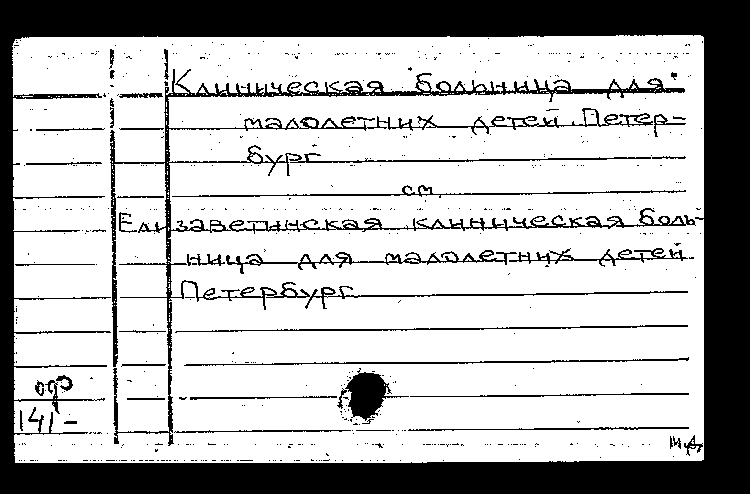 Клиническая больница для
малолетних детей. Петер-
бург
см.
Елизаветинская клиническая боль-
ница для малолетних детей
Петербург
141-